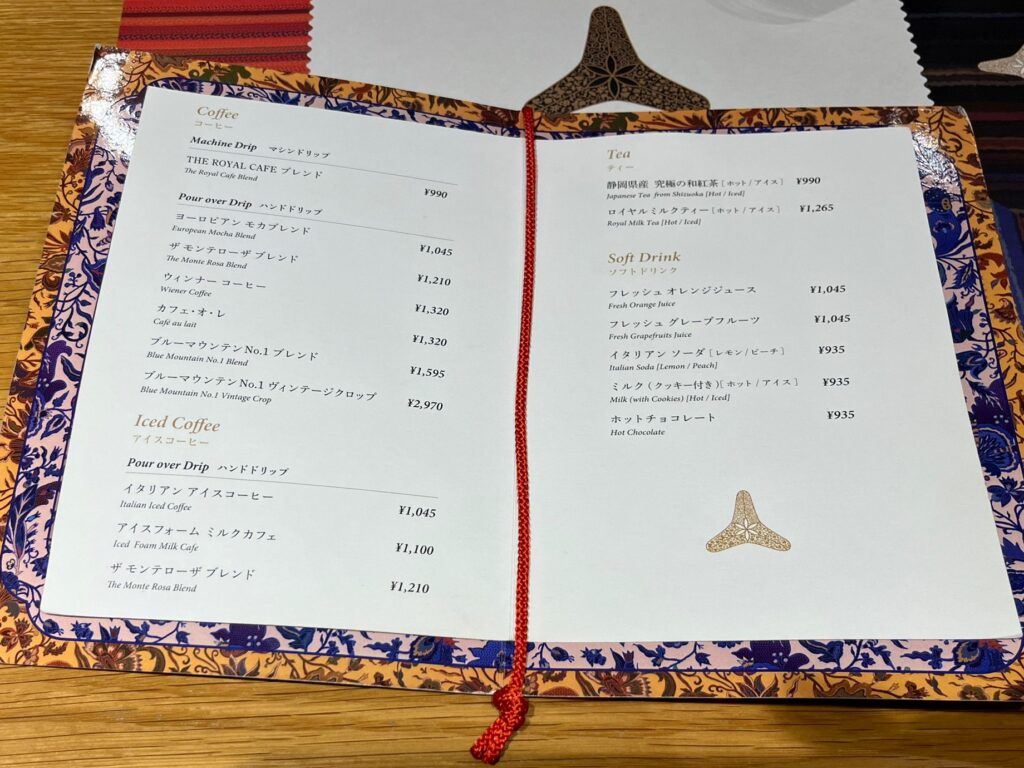 Coffee
コーヒー
Machine Drip マシンドリップ
THE ROYAL CAFE ブレンド
The Royal Cafe Blend
¥990
Pour over Drip ハンドドリップ
ヨーロピアン モカブレンド
European Mocha Blend
¥1,045
ザ モンテローザ ブレンド
The Monte Rosa Blend
¥1,210
ウィンナー コーヒー
Wiener Coffee
¥1,320
カフェ・オ・レ
Café au lait
¥1,320
ブルーマウンテンNo.1 ブレンド
Blue Mountain No.1 Blend
¥1,595
ブルーマウンテンNo.1 ヴィンテージクロップ
Blue Mountain No.1 Vintage Crop
¥2,970
Iced Coffee
アイスコーヒー
Pour over Drip ハンドドリップ
イタリアン アイスコーヒー
Italian Iced Coffee
¥1,045
アイスフォーム ミルクカフェ
Iced Foam Milk Cafe
¥1,100
ザ モンテローザ ブレンド
The Monte Rosa Blend
¥1,210
Tea
ティー
静岡県産 究極の和紅茶 [ホット / アイス] ¥990
Japanese Tea from Shizuoka [Hot / Iced]
ロイヤルミルクティー [ホット / アイス] ¥1,265
Royal Milk Tea [Hot / Iced]
Soft Drink
ソフトドリンク
フレッシュ オレンジジュース ¥1,045
Fresh Orange Juice
フレッシュ グレープフルーツ ¥1,045
Fresh Grapefruits Juice
イタリアン ソーダ [レモン / ピーチ] ¥935
Italian Soda [Lemon / Peach]
ミルク (クッキー付き) [ホット / アイス] ¥935
Milk (with Cookies) [Hot / Iced]
ホットチョコレート ¥935
Hot Chocolate